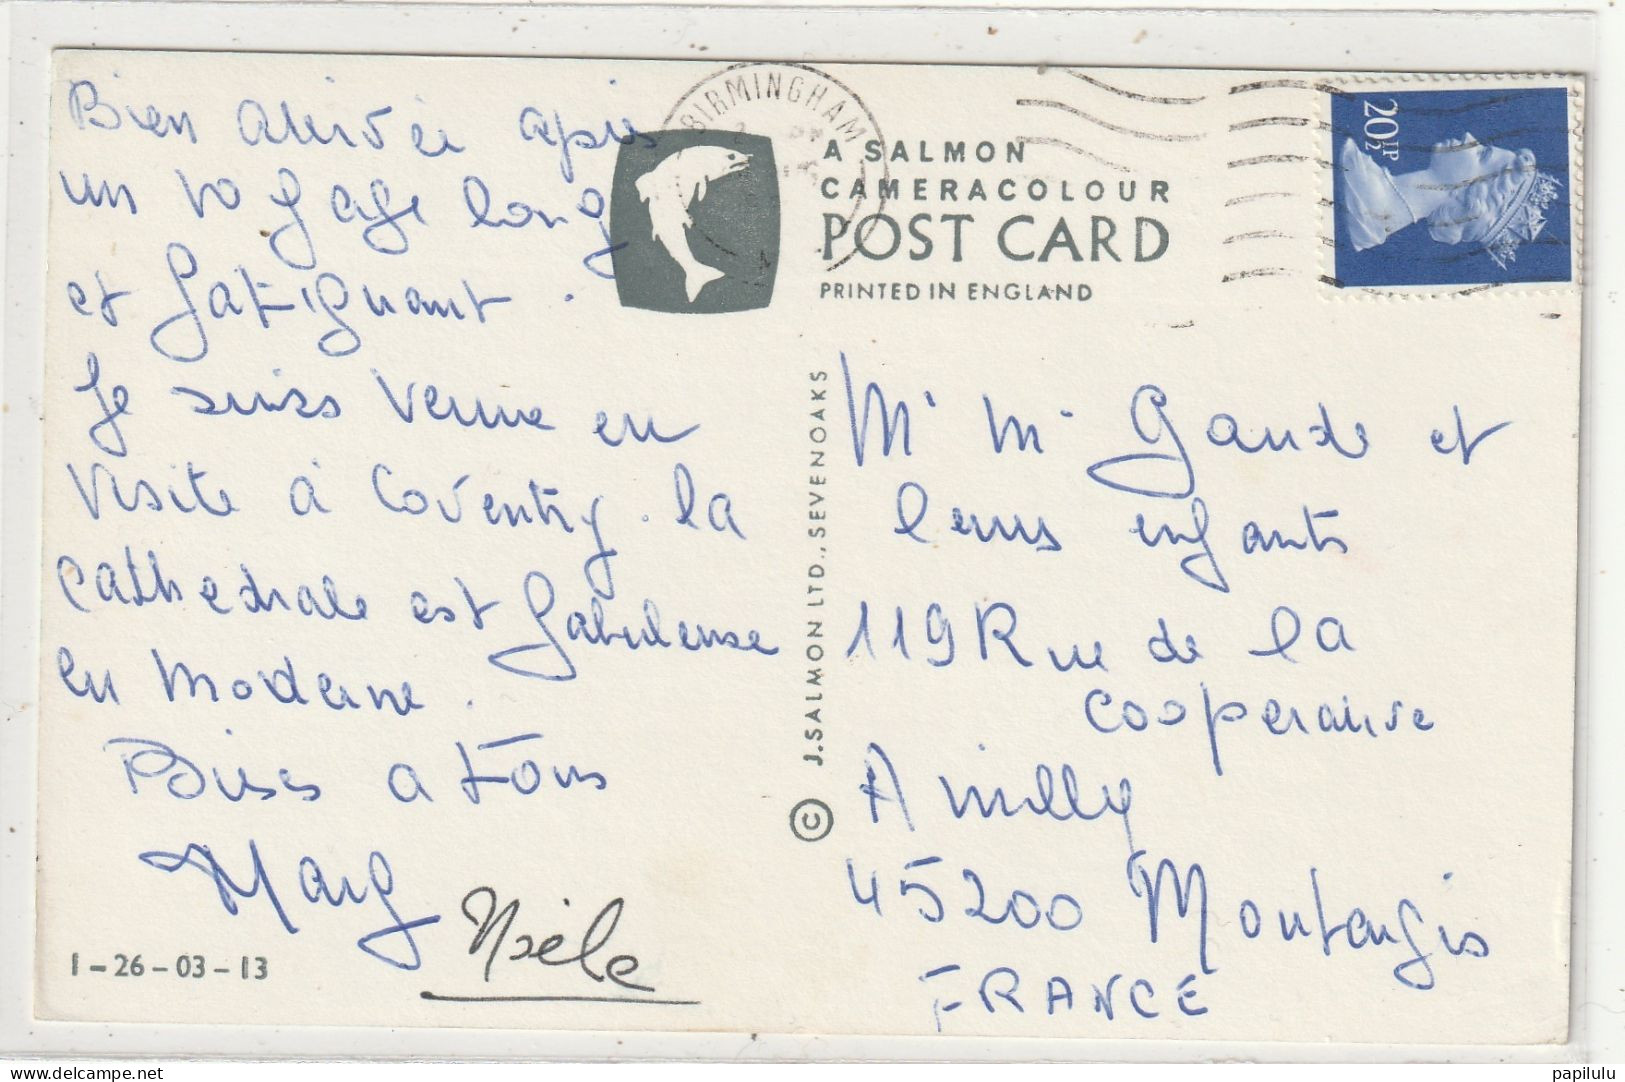 Bien arrivée après
un voyage long
et fatiguant.
Je suis venue en
visite à Coventry. la
cathedrale est fabuleuse
en moderne.
Bises a tous
Noële
1-26-03-13
BIRMINGHAM
A SALMON
CAMERACOLOUR
POST CARD
PRINTED IN ENGLAND
20½P
© J. SALMON LTD., SEVENOAKS
Mr Me Gaude et
leurs enfants
119 Rue de la
cooperative
Amilly
45200 Montargis
FRANCE
papilulu